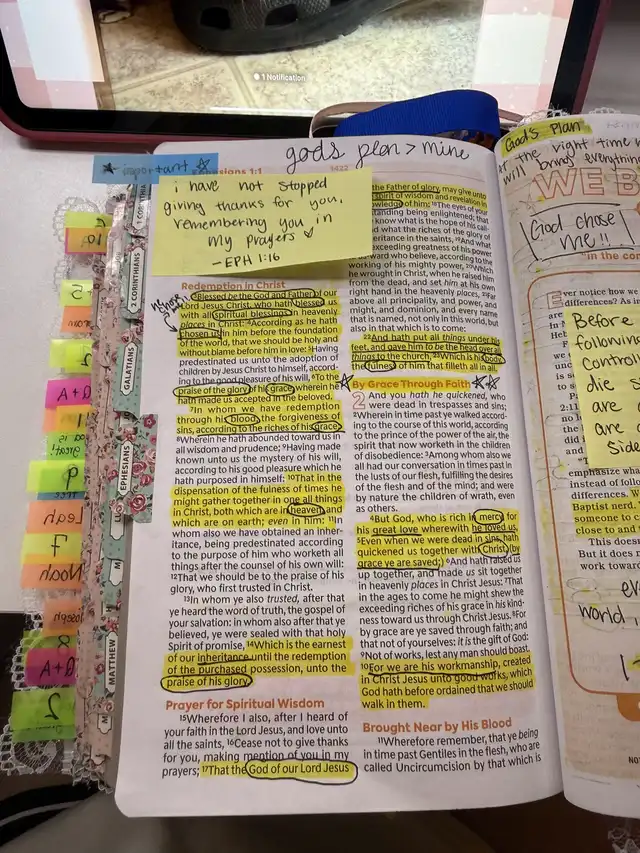 1 Notification
gods plan > mine
★ important ☆
Ephesians 1:1
1422
i have not stopped
giving thanks for you,
remembering you in
my prayers
- EPH 1:16
Redemption in Christ
3Blessed be the God and Father of our
Lord Jesus Christ, who hath blessed us
with all spiritual blessings in heavenly
places in Christ: 4According as he hath
chosen us in him before the foundation
of the world, that we should be holy and
without blame before him in love: 5Having
predestinated us unto the adoption of
children by Jesus Christ to himself, accord-
ing to the good pleasure of his will, 6To the
praise of the glory of his grace, wherein he
hath made us accepted in the beloved.
7In whom we have redemption
through his blood, the forgiveness of
sins, according to the riches of his grace;
8Wherein he hath abounded toward us in
all wisdom and prudence; 9Having made
known unto us the mystery of his will,
according to his good pleasure which he
hath purposed in himself: 10That in the
dispensation of the fulness of times he
might gather together in one all things
in Christ, both which are in heaven,
which are on earth; even in him: 11In
whom also we have obtained an inher-
itance, being predestinated according
to the purpose of him who worketh all
things after the counsel of his own will:
12That we should be to the praise of his
glory, who first trusted in Christ.
13In whom ye also trusted, after that
ye heard the word of truth, the gospel of
your salvation: in whom also after that ye
believed, ye were sealed with that holy
Spirit of promise, 14Which is the earnest
of our inheritance until the redemption
of the purchased possession, unto the
praise of his glory.
Prayer for Spiritual Wisdom
15Wherefore I also, after I heard of
your faith in the Lord Jesus, and love unto
all the saints, 16Cease not to give thanks
for you, making mention of you in my
prayers; 17That the God of our Lord Jesus
the Father of glory, may give unto
spirit of wisdom and revelation in
knowledge of him: 18The eyes of your
standing being enlightened; that
know what is the hope of his call-
what the riches of the glory of
heritance in the saints, 19And what
exceeding greatness of his power
ward who believe, according to the
working of his mighty power, 20Which
he wrought in Christ, when he raised him
from the dead, and set him at his own
right hand in the heavenly places, 21Far
above all principality, and power, and
might, and dominion, and every name
that is named, not only in this world, but
also in that which is to come:
22And hath put all things under his
feet, and gave him to be the head over all
things to the church, 23Which is his body,
the fulness of him that filleth all in all.
★ By Grace Through Faith ★★
2 And you hath he quickened, who
were dead in trespasses and sins;
2Wherein in time past ye walked accord-
ing to the course of this world, according
to the prince of the power of the air, the
spirit that now worketh in the children
of disobedience: 3Among whom also we
all had our conversation in times past in
the lusts of our flesh, fulfilling the desires
of the flesh and of the mind; and were
by nature the children of wrath, even
as others.
4But God, who is rich in mercy, for
his great love wherewith he loved us,
5Even when we were dead in sins, hath
quickened us together with Christ, (by
grace ye are saved;) 6And hath raised us
up together, and made us sit together
in heavenly places in Christ Jesus: 7That
in the ages to come he might shew the
exceeding riches of his grace in his kind-
ness toward us through Christ Jesus. 8For
by grace are ye saved through faith; and
that not of yourselves: it is the gift of God:
9Not of works, lest any man should boast.
10For we are his workmanship, created
in Christ Jesus unto good works, which
God hath before ordained that we should
walk in them.
Brought Near by His Blood
11Wherefore remember, that ye being
in time past Gentiles in the flesh, who are
called Uncircumcision by that which is
God's Plan
the right time
will bring everything
WE B
God chose
me!!
"in the co
Ever notice how we
differences? As i
Before
following
control
die s
are
are
side
2:11
did i
emphasize what
instead of follow
differences. W
Baptist nerd. "
someone to c
close to and
This doesn
But it does r
work toward
world,
2 CORINTHIANS
GALATIANS
EPHESIANS
MATTHEW
Q+A
great!
Leah
Noah
Joseph
Q+A